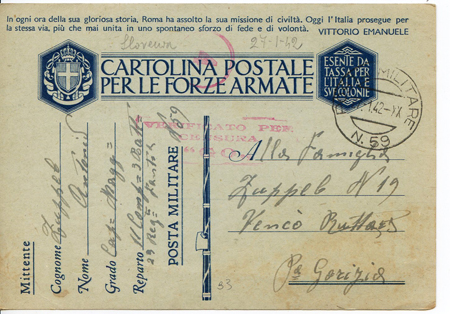 In ogni ora della sua gloriosa storia, Roma ha assolto la sua missione di civiltà. Oggi l'Italia prosegue per
la stessa via, più che mai unita in uno spontaneo sforzo di fede e di volontà. VITTORIO EMANUELE
27-1-42
CARTOLINA POSTALE
PER LE FORZE ARMATE
ESENTE DA
TASSA PER
L'ITALIA E
SUE COLONIE
MILITARE
1.42-XX
N. 59
VERIFICATO PER
CENSURA
Mittente
Cognome Zuppel
Nome Antonio
Grado Cap= Magg=
Reparto
29 Reg=
POSTA MILITARE 59
Alla Famiglia
Zuppel N 19
Vencò
Gorizia
53